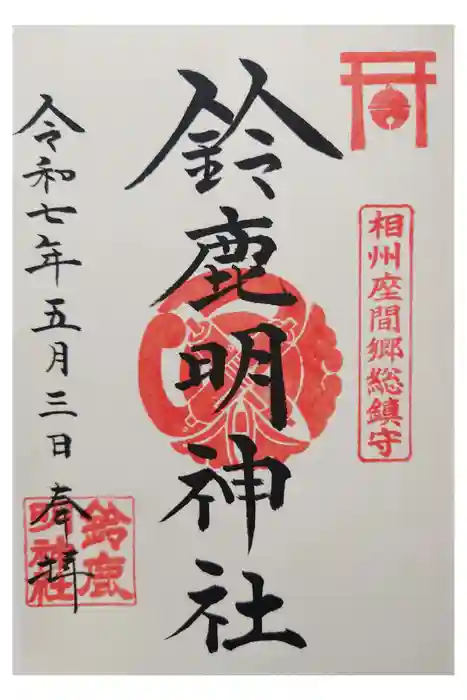 相州座間郷総鎮守
鈴鹿明神社
令和七年五月三日 奉拝
鈴鹿
明神社